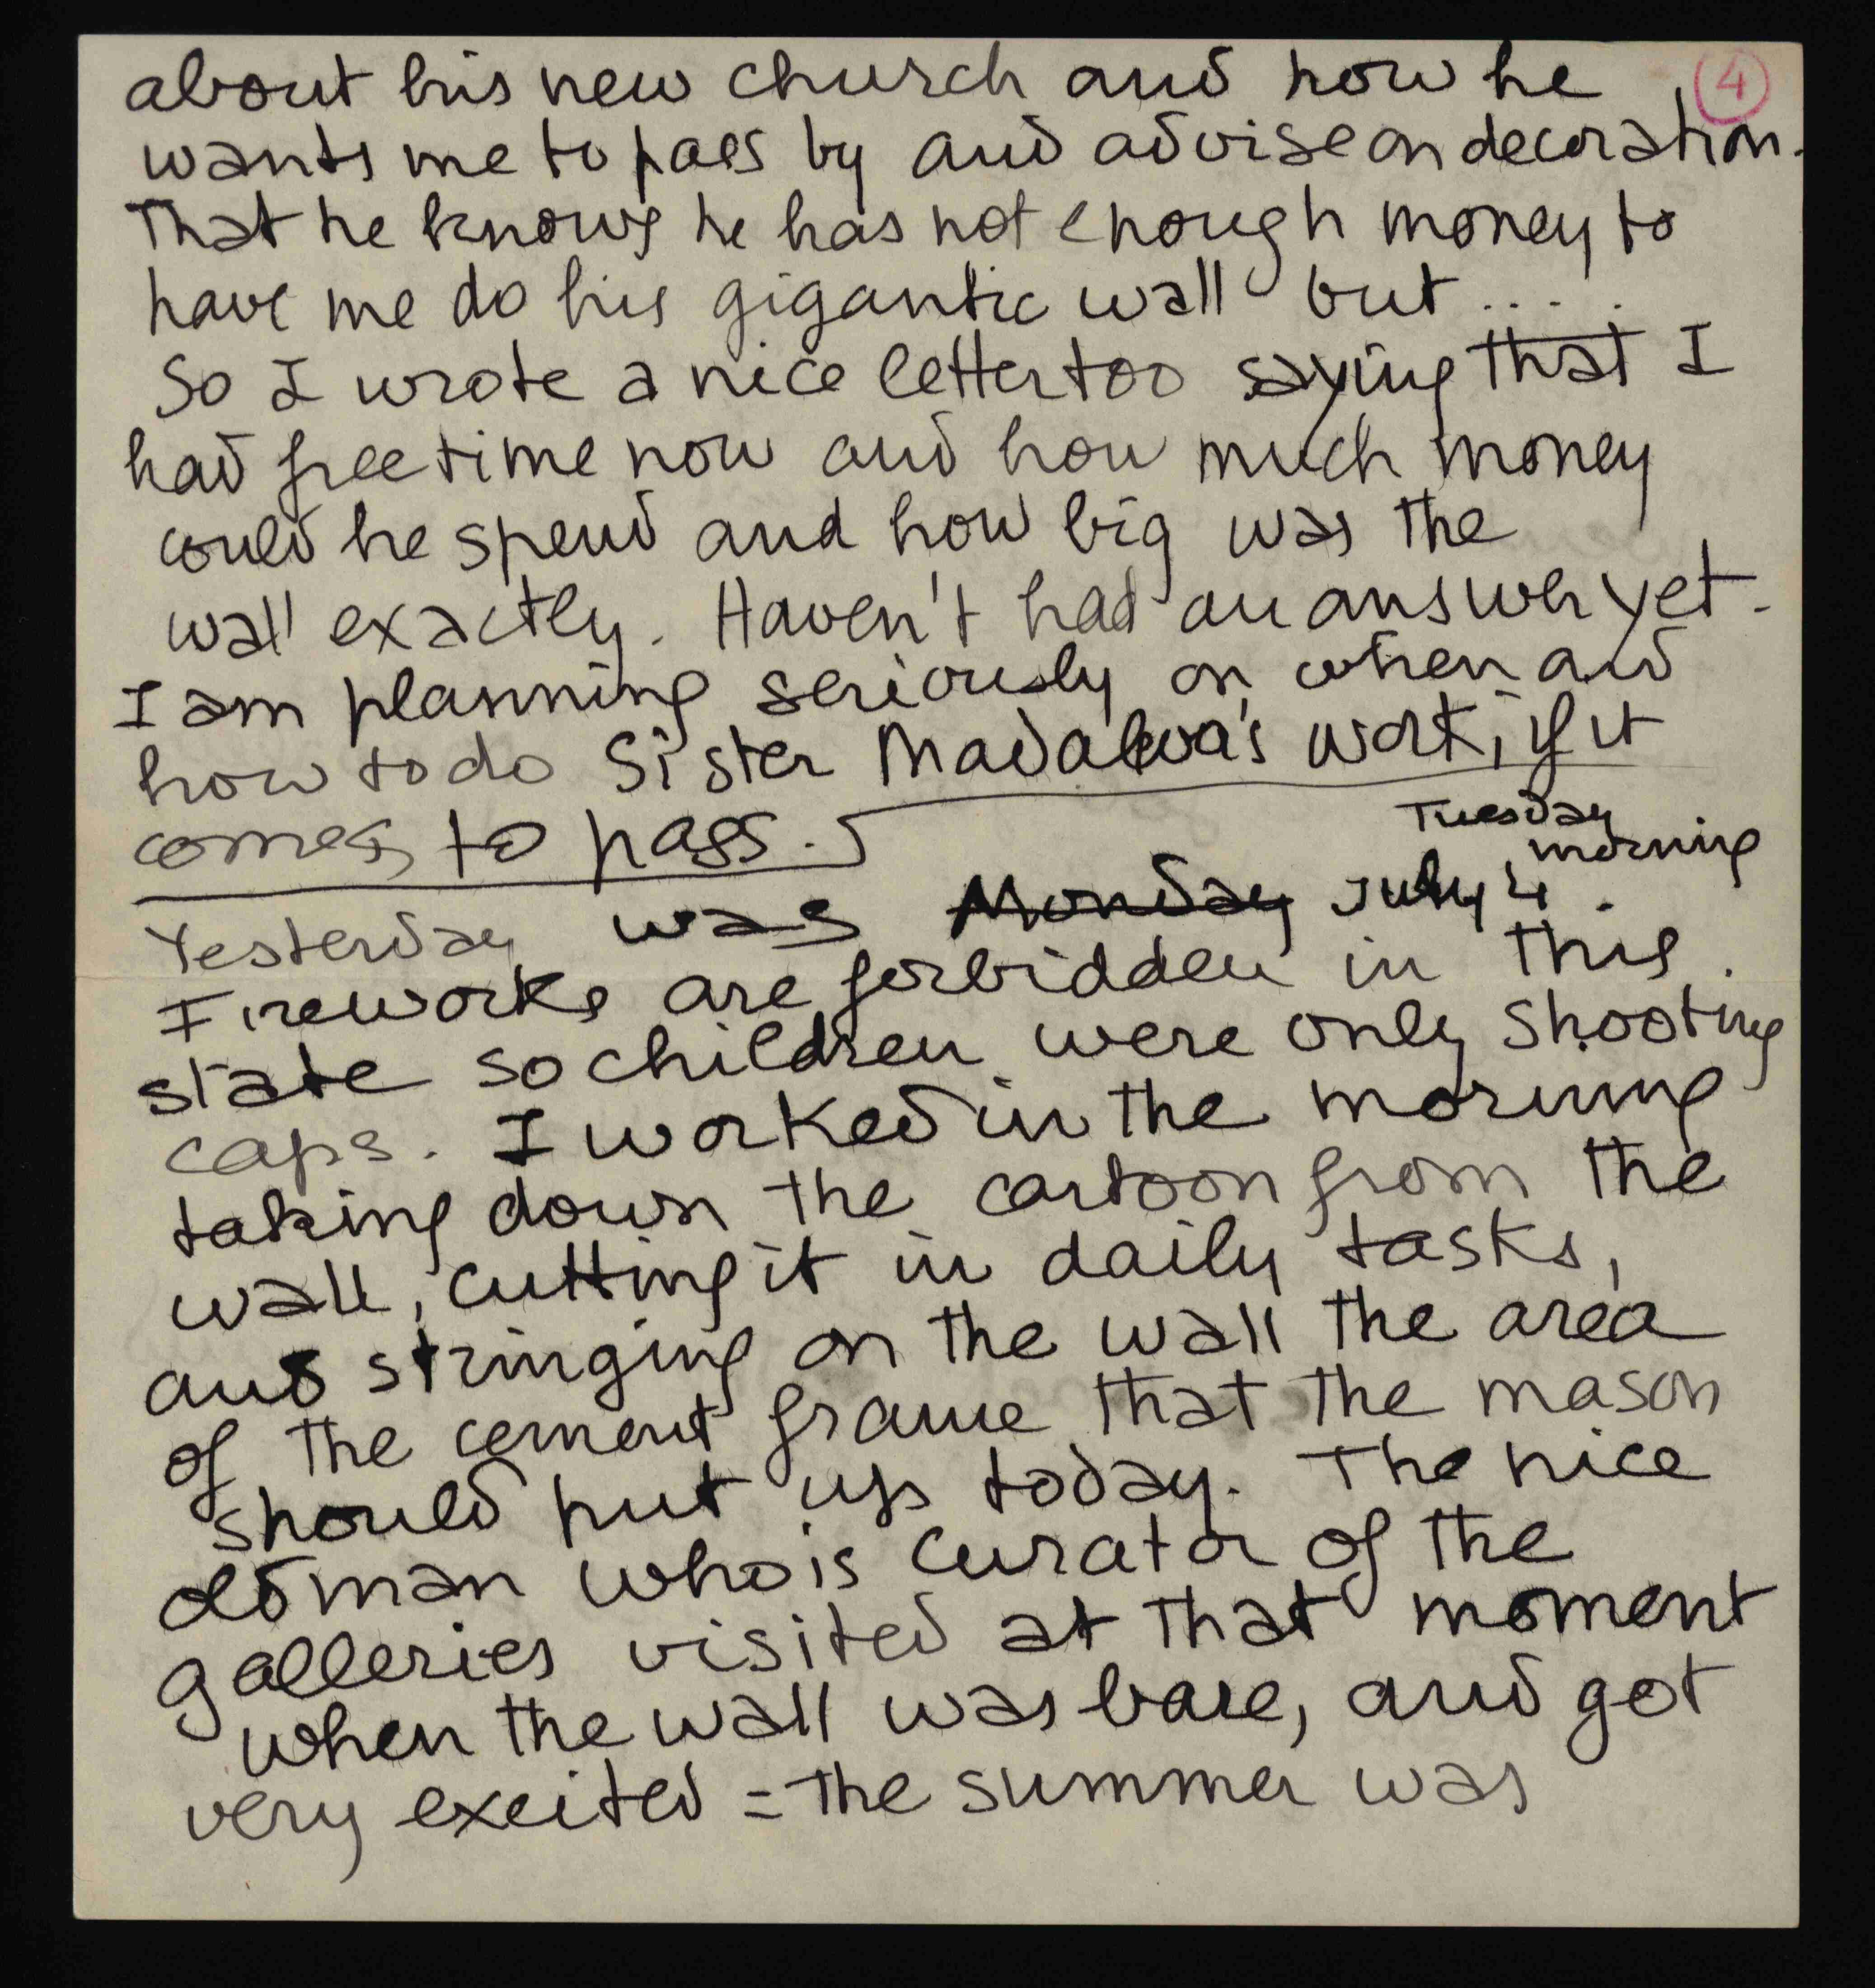 about his new church and how he ④
wants me to pass by and advise on decoration.
That he knows he has not enough money to
have me do his gigantic wall but ....
So I wrote a nice letter too saying that I
had free time now and how much money
could he spend and how big was the
wall exactly. Haven't had an answer yet.
I am planning seriously on when and
how to do Sister Madaleva's work, if it
comes to pass.
Tuesday
morning
Yesterday was Monday July 4.
Fireworks are forbidden in this
state so children were only shooting
caps. I worked in the morning
taking down the cartoon from the
wall, cutting it in daily tasks,
and stringing on the wall the area
of the cement frame that the mason
should put up today. The nice
old man who is curator of the
galleries visited at that moment
when the wall was bare, and got
very excited = the summer was